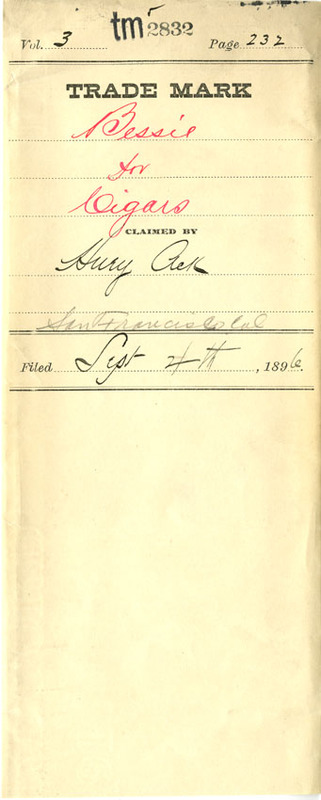 tm 2832
Vol. 3 Page 232
TRADE MARK
Bessie
for
Cigars
CLAIMED BY
Hury Ack
San Francisco Cal
Filed Sept 4th, 1896.